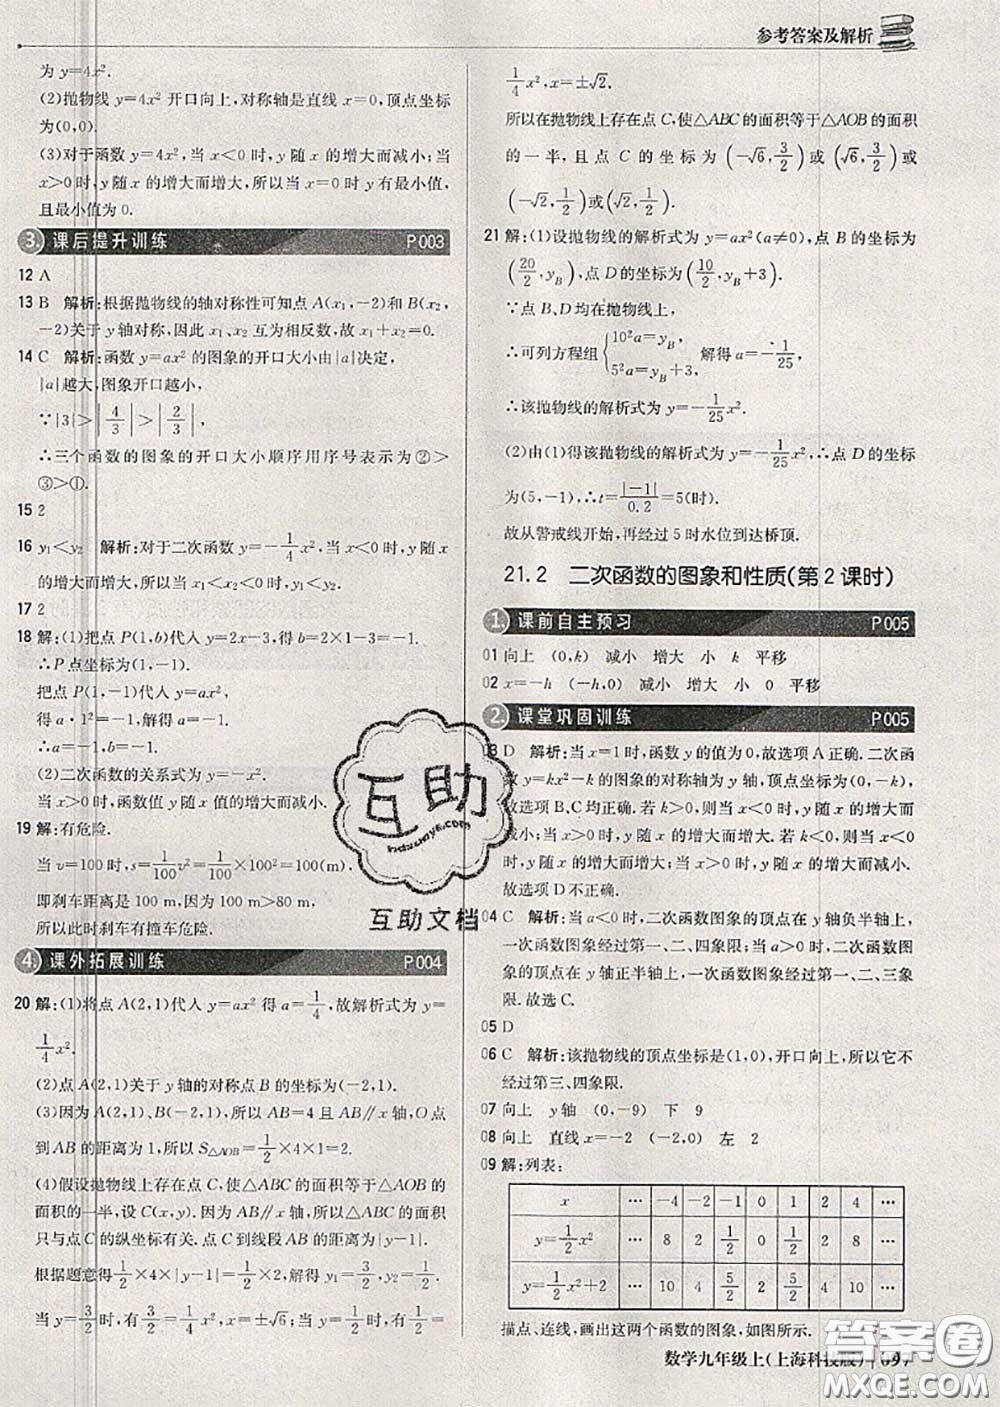 参考答案及解析
为 y=4x².
(2)抛物线 y=4x² 开口向上,对称轴是直线 x=0,顶点坐标
为(0,0).
(3)对于函数 y=4x²,当 x<0 时,y 随 x 的增大而减小;当
x>0 时,y 随 x 的增大而增大,所以当 x=0 时 y 有最小值,
且最小值为 0.
3. 课后提升训练 P003
12 A
13 B 解析:根据抛物线的轴对称性可知点 A(x₁,-2)和 B(x₂,
-2)关于 y 轴对称,因此 x₁、x₂ 互为相反数,故 x₁+x₂=0.
14 C 解析:函数 y=ax² 的图象的开口大小由|a|决定,
|a|越大,图象开口越小,
∵|3|>|4/3|>|2/3|,
∴三个函数的图象的开口大小顺序用序号表示为②>
③>①.
15 2
16 y₁<y₂ 解析:对于二次函数 y=-1/4x²,当 x<0 时,y 随 x
的增大而增大,所以当 x₁<x₂<0 时,y₁<y₂.
17 2
18 解:(1)把点 P(1,b)代入 y=2x-3,得 b=2×1-3=-1.
∴P 点坐标为(1,-1).
把点 P(1,-1)代入 y=ax²,
得 a·1²=-1.
∴a=-1.
(2)二次函数的关系式为 y=-x².
当 x<0 时,函数值 y 随 x 值的增大而增大.
19 解:有危险.
当 v=100 时,s=1/100v²=1/100×100²=100(m),
即刹车距离是 100 m,因为 100 m>80 m,
所以此时刹车有撞车危险.
4. 课外拓展训练 P004
20 解:(1)将点 A(2,1)代入 y=ax² 得 a=1/4,故解析式为 y=
1/4x².
(2)点 A(2,1)关于 y 轴的对称点 B 的坐标为(-2,1).
(3)因为 A(2,1),B(-2,1),所以 AB=4 且 AB∥x 轴,O 点
到 AB 的距离为 1,所以 S△AOB=1/2×4×1=2.
(4)假设抛物线上存在点 C,使△ABC 的面积等于△AOB 的
面积的一半,设 C(x,y).因为 AB∥x 轴,所以△ABC 的面积
只与点 C 的纵坐标有关.点 C 到线段 AB 的距离为|y-1|.
根据题意得1/2×4×|y-1|=1/2×2,解得 y₁=3/2,y₂=1/2.
当 y=3/2 时,有3/2=1/4x²,x=±√6,当 y=1/2 时,有1/2=
1/4x²,x=±√2.
所以在抛物线上存在点 C,使△ABC 的面积等于△AOB 的面积
的一半,且点 C 的坐标为(-√6,3/2)或(√6,3/2)或
(-√2,1/2)或(√2,1/2).
21 解:(1)设抛物线的解析式为 y=ax²(a≠0),点 B 的坐标为
(20/2,yB),点 D 的坐标为(10/2,yB+3).
∵点 B、D 均在抛物线上,
∴可列方程组{10²a=yB, 5²a=yB+3, 解得 a=-1/25.
∴该抛物线的解析式为 y=-1/25x².
(2)由(1)得该抛物线的解析式为 y=-1/25x²,∴点 D 的坐标
为(5,-1),∴t=|-1|/0.2=5(时).
故从警戒线开始,再经过 5 时水位到达桥顶.
21.2 二次函数的图象和性质(第2课时)
1. 课前自主预习 P005
01 向上 (0,k) 减小 增大 小 k 平移
02 x=-h (-h,0) 减小 增大 小 0 平移
2. 课堂巩固训练 P005
03 D 解析:当 x=1 时,函数 y 的值为 0,故选项 A 正确.二次函
数 y=kx²-k 的图象的对称轴为 y 轴,顶点坐标为(0,-k),
故选项 B、C 均正确.若 k>0,则当 x>0 时,y 随 x 的增大而
减小;当 x<0 时,y 随 x 的增大而增大.若 k<0,则
时,y 随 x 的增大而增大;当 x>0 时,y 随 x 的增大而减小.
故选项 D 不正确.
04 C 解析:当 a<0 时,二次函数图象的顶点在 y 轴负半轴上,
一次函数图象经过第一、二、四象限;当 a>0 时,二次函数图
象的顶点在 y 轴正半轴上,一次函数图象经过第一、二、三象
限.故选 C.
05 D
06 C 解析:该抛物线的顶点坐标是(1,0),开口向上,所以它不
经过第三、四象限.
07 向上 y 轴 (0,-9) 下 9
08 向上 直线 x=-2 (-2,0) 左 2
09 解:列表:
x … -4 -2 -1 0 1 2 4 …
y=1/2x² … 8 2 1/2 0 1/2 2 8 …
y=1/2x²+2 … 10 4 5/2 2 5/2 4 10 …
描点、连线,画出这两个函数的图象,如图所示.
数学九年级上(上海科技版) 097
互助
互助文档
答案圈
MXQE.COM